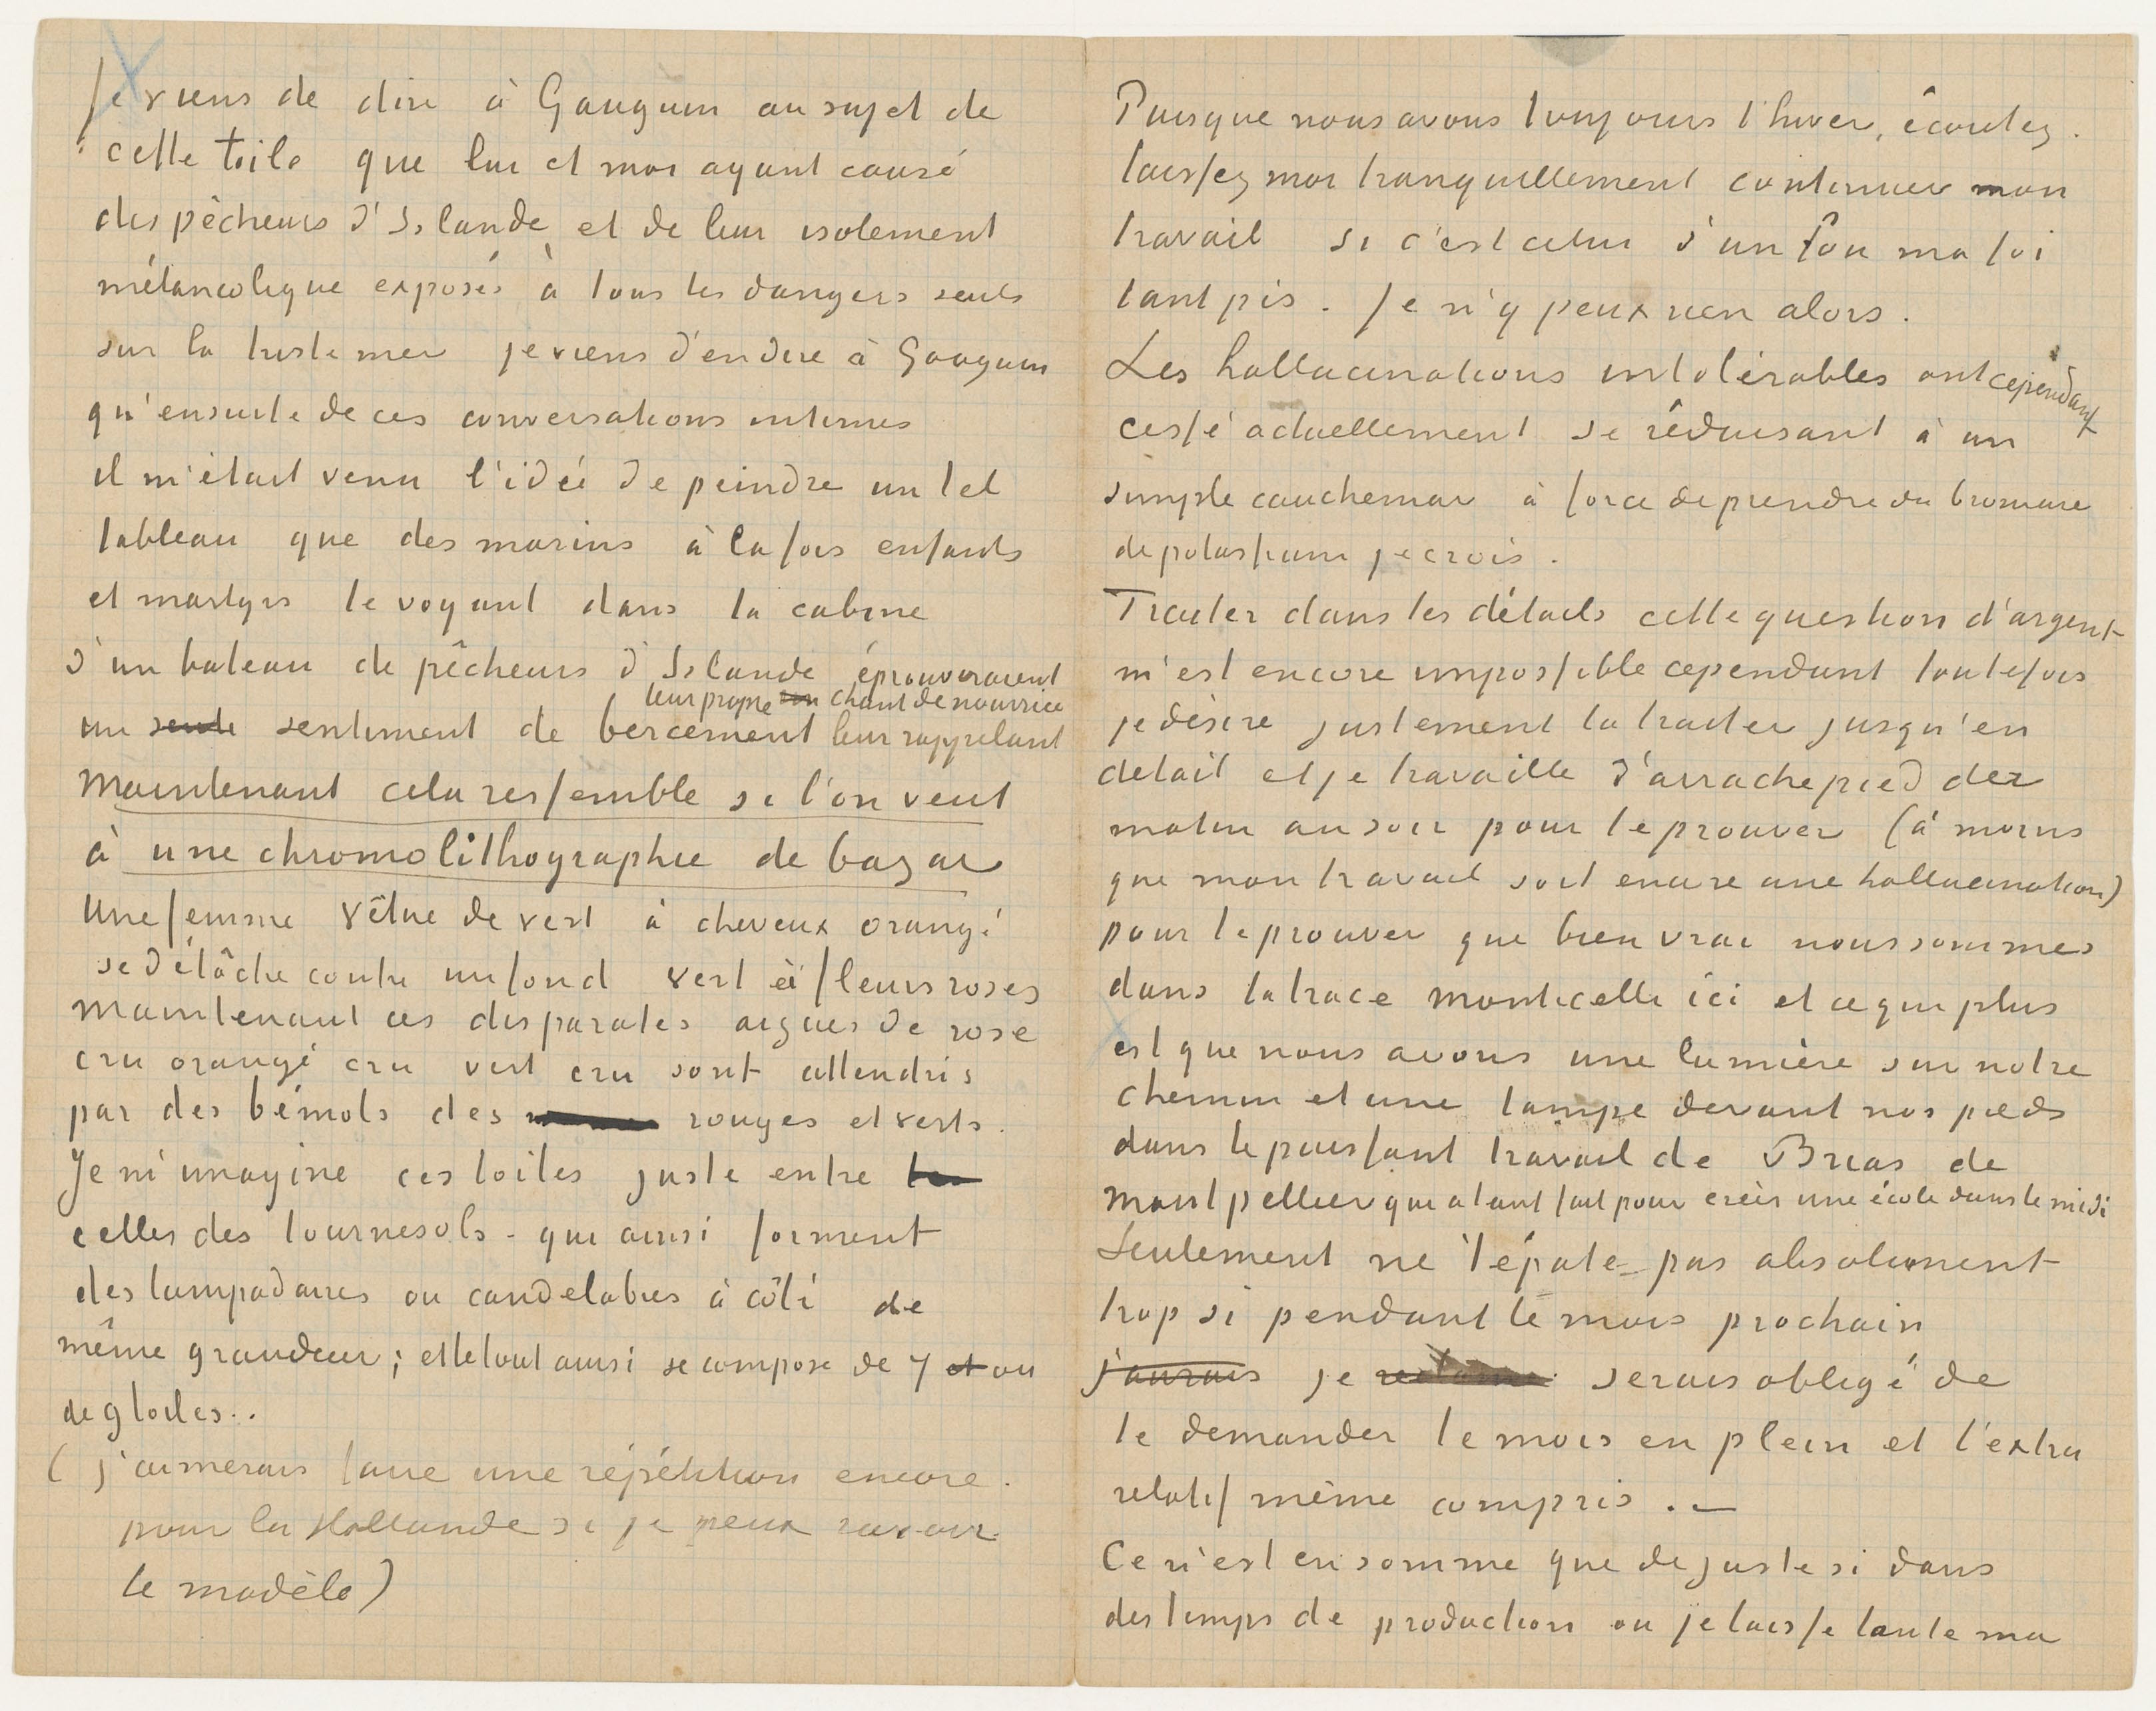 Je viens de dire à Gauguin au sujet de
cette toile que lui et moi ayant causé
des pêcheurs d'Islande et de leur isolement
mélancolique exposés à tous les dangers seuls
sur la triste mer je viens d'en dire à Gauguin
qu'ensuite de ces conversations intimes
il m'était venu l'idée de peindre un tel
tableau que des marins à la fois enfants
et martyrs le voyant dans la cabine
d'un bateau de pêcheurs d'Islande éprouveraient
leur propre chant de nourrice
un seule sentiment de bercement leur rappelant
Maintenant cela ressemble si l'on veut
à une chromolithographie de bazar
Une femme vêtue de vert à cheveux orangé
se détâche contre un fond vert à fleurs roses
Maintenant ces disparates aigues de rose
cru orangé cru vert cru sont attendris
par des bémols des rouges et verts.
Je m'imagine ces toiles juste entre
celles des tournesols - qui ainsi forment
des lampadaires ou candelabres à côté de
même grandeur; et le tout ainsi se compose de 7 et ou
de 9 toiles..
(j'aimerais faire une répétition encore.
pour la Hollande si je peux ravoir
le modèle)
Puisque nous avons toujours l'hiver, écoutez.
laissez moi tranquillement continuer mon
travail si c'est celui d'un fou ma foi
tant pis. Je n'y peux rien alors.
Les hallucinations intolérables ont cependant
cessé actuellement se réduisant à un
simple cauchemar à force de prendre du bromure
de potassium je crois.
Traiter dans les détails cette question d'argent
m'est encore impossible cependant toutefois
je désire justement la traiter jusqu'en
detail et je travaille d'arrachepied dez
matin au soir pour te prouver (à moins
que mon travail soit encore une hallucination)
pour te prouver que bien vrai nous sommes
dans la trace Monticelli ici et ce qui plus
est que nous avons une lumière sur notre
chemin et une lampe devant nos pieds
dans le puissant travail de Brias de
Montpellier qui a tant fait pour créer une école dans le midi
Seulement ne t'épate pas absolument
trop si pendant le mois prochain
j'aurais je serais obligé de
te demander le mois en plein et l'extra
relatif même compris. —
Ce n'est en somme que de juste si dans
des temps de production ou je laisse toute ma